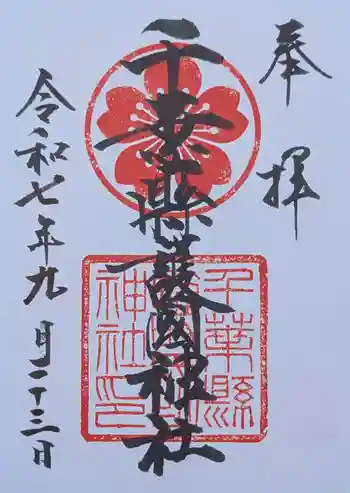 奉拝
千葉縣護國神社
令和七年九月二十三日
千葉縣
護國神
社印